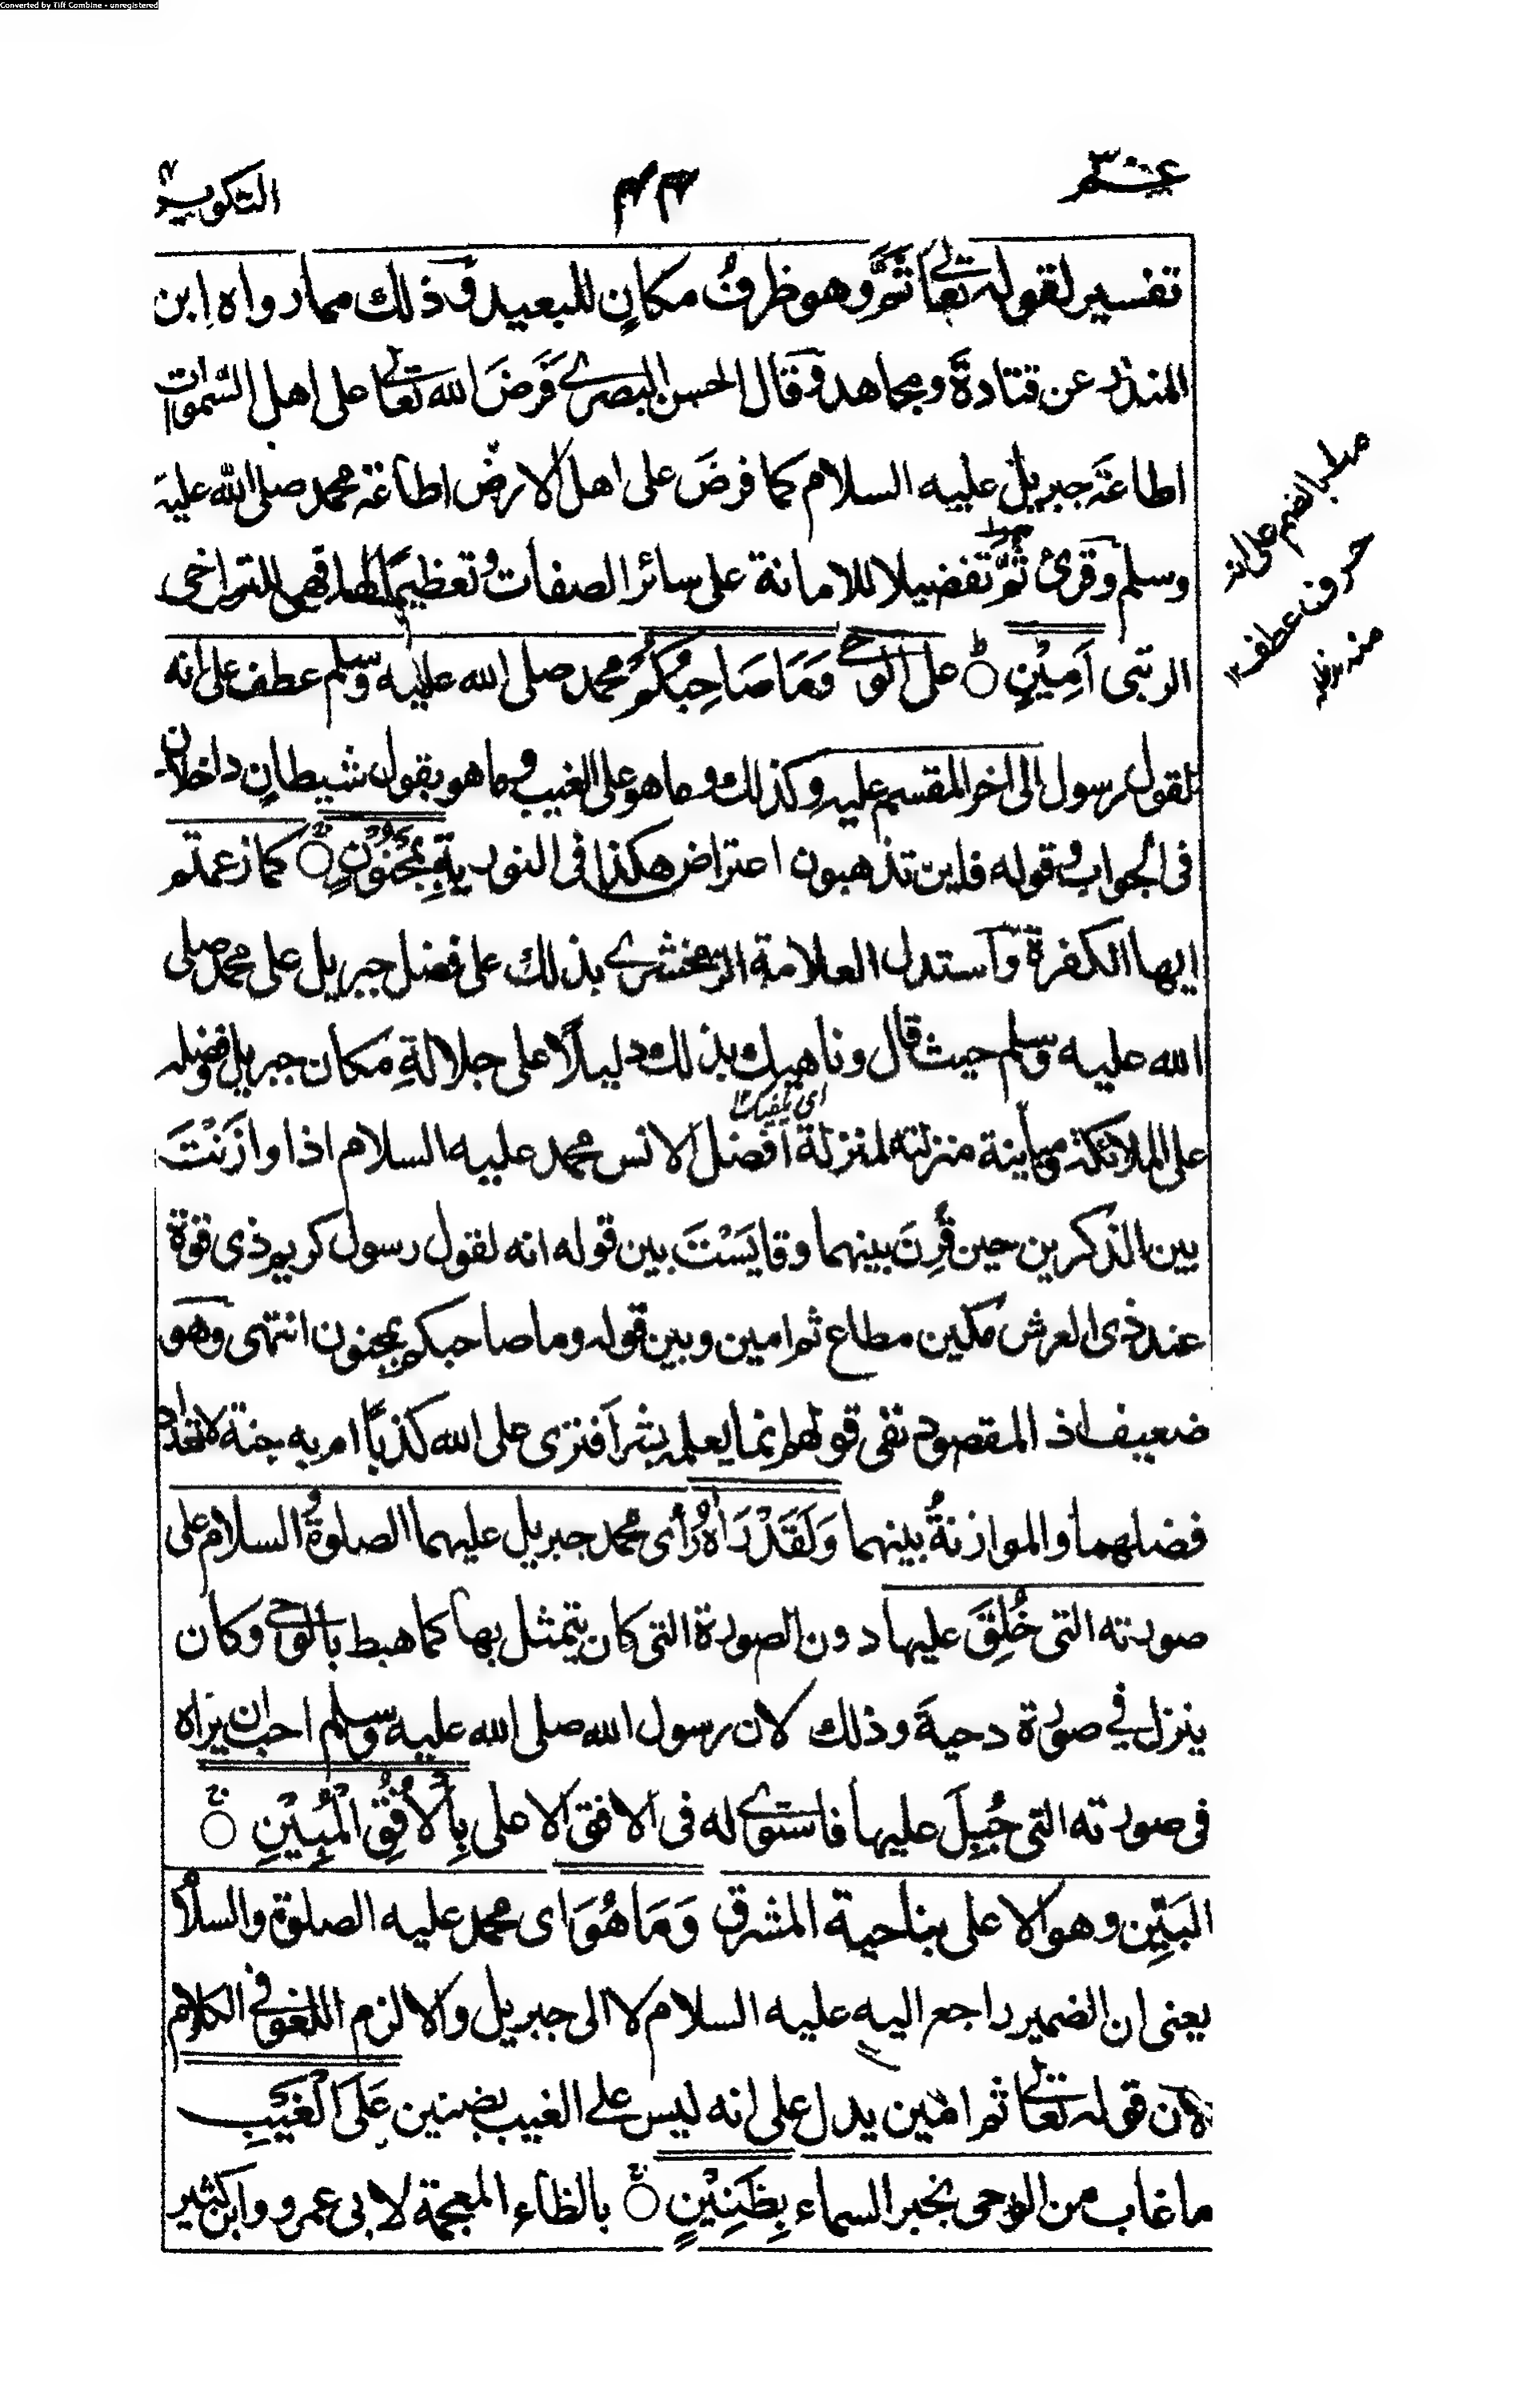 Converted by Tiff Combine - unregistered
عم ٣٠
٤٤
التكوير
تفسير لقوله تعالى ثَمَّ وهو ظرفُ مكانٍ للبعيد وذلك مما رواه ابن
المنذر عن قتادة ومجاهد وقال الحسن البصرى فَرَضَ الله تعالى على اهل السموات
اطاعَةَ جبريل عليه السلام كما فرضَ على اهل الارض اطاعة محمد صلى الله عليه
وسلم وقرئ ثُمَّ تفضيلا للامانة على سائر الصفات وتعظيمًا لها فهى للتراخى
الرتبى اَمِيْنٍ على الوحى وَمَا صَاحِبُكُمْ محمد صلى الله عليه وسلم عطف على انه
لقول رسول الى اخر المقسم عليه وكذلك وما هو على الغيب وما هو بقول شيطانٍ داخلان
فى الجواب وقوله فاين تذهبون اعتراض هكذا فى النورية بِمَجْنُوْنٍ كما زعمتم
ايها الكفرة واستدل العلامة الزمخشرى بذلك على فضل جبريل على محمد صلى
الله عليه وسلم حيث قال وناهيك بذلك دليلًا على جلالةِ مكان جبريل وفضله
اى يكفيك ١٢
على الملائكة ومباينة منزلته لمنزلة افضل الانس محمد عليه السلام اذا وازَنْتَ
بين الذكرين حين قُرِنَ بينهما وقايَسْتَ بين قوله انه لقول رسول كريم ذى قوة
عند ذى العرش مكين مطاع ثم امين وبين قوله وما صاحبكم بمجنون انتهى وهو
ضعيف اذ المقصود نفى قولهم انما يعلمه بشر افترى على الله كذبًا ام به جنة لا تعداد
فضلهما والموازنةُ بينهما وَلَقَدْ رَاٰهُ رأى محمد جبريل عليهما الصلوة والسلام على
صورته التى خُلِقَ عليها دون الصورة التى كان يتمثل بها كما هبط بالوحى وكان
ينزل في صورة دحية وذلك لان رسول الله صلى الله عليه وسلم احب ان يراه
فى صورته التى جُبِلَ عليها فاستوى له فى الافق الاعلى بِالْاُفُقِ الْمُبِيْنِ
البَيِّنِ وهو الاعلى بناحية المشرق وَمَا هُوَ اى محمد عليه الصلوة والسلام
يعنى ان الضمير راجع اليه عليه السلام لا الى جبريل والا لزم اللغو في الكلام
لان قوله تعالى ثم امين يدل على انه ليس على الغيب بضنين عَلَى الْغَيْبِ
ما غاب من الوحى بخبر السماء بِظَنِيْنٍ بالظاء المعجمة لابى عمرو وابن كثير
بالضم على انه
حرف عطف ١٢
منه